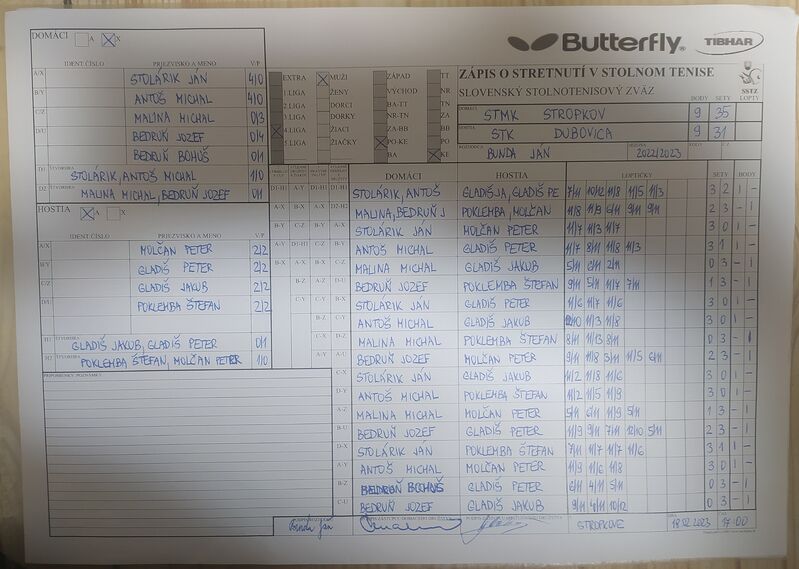 DOMÁCI A X
Butterfly TIBHAR
IDENT ČÍSLO PRIEZVISKO A MENO V/P
ZÁPIS O STRETNUTÍ V STOLNOM TENISE
SLOVENSKÝ STOLNOTENISOVÝ ZVÄZ
SSTZ
BODY SETY LOPTY
A/X STOLÁRIK JÁN 4/0
B/Y ANTOŠ MICHAL 4/0
C/Z MALINA MICHAL 0/3
D/U BEDRUŇ JOZEF 0/4
BEDRUŇ BOHUŠ 0/1
D1 STOLÁRIK, ANTOŠ MICHAL 1/0
D2 MALINA MICHAL, BEDRUŇ JOZEF 0/1
EXTRA MUŽI ZÁPAD TT
1.LIGA ŽENY VÝCHOD NR
2.LIGA DORCI BA-TT TN
3.LIGA DORKY NR-TN ZA
4.LIGA ŽIACI ZA-BB BB
5.LIGA ŽIAČKY PO-KE PO
BA KE
STMK STROPKOV 9 35
STK DUBOVICA 9 31
BUNDA JÁN 2022/2023
HOSTIA A X
IDENT ČÍSLO PRIEZVISKO A MENO V/P
A/X MOLČAN PETER 2/2
B/Y GLADIŠ PETER 2/2
C/Z GLADIŠ JAKUB 2/2
D/U POKLEMBA ŠTEFAN 2/2
GLADIŠ JAKUB, GLADIŠ PETER 0/1
POKLEMBA ŠTEFAN, MOLČAN PETER 1/0
PRIPOMIENKY, POZNÁMKY
DOMÁCI HOSTIA LOPTIČKY SETY BODY
STOLÁRIK, ANTOŠ GLADIŠ JA, GLADIŠ PE 7/11 10/12 11/8 11/5 11/3 3 2 1 -
MALINA, BEDRUŇ J POKLEMBA, MOLČAN 11/8 11/9 6/11 9/11 9/11 2 3 - 1
STOLÁRIK JÁN MOLČAN PETER 11/7 11/3 11/7 3 0 1 -
ANTOŠ MICHAL GLADIŠ PETER 11/7 8/11 11/8 11/3 3 1 1 -
MALINA MICHAL GLADIŠ JAKUB 5/11 6/11 2/11 0 3 - 1
BEDRUŇ JOZEF POKLEMBA ŠTEFAN 9/11 5/11 11/7 7/11 1 3 - 1
STOLÁRIK JÁN GLADIŠ PETER 11/6 11/7 11/6 3 0 1 -
ANTOŠ MICHAL GLADIŠ JAKUB 12/10 11/3 11/8 3 0 1 -
MALINA MICHAL POKLEMBA ŠTEFAN 8/11 11/13 8/11 0 3 - 1
BEDRUŇ JOZEF MOLČAN PETER 9/11 11/8 5/11 11/5 6/11 2 3 - 1
STOLÁRIK JÁN GLADIŠ JAKUB 11/2 11/8 11/6 3 0 1 -
ANTOŠ MICHAL POKLEMBA ŠTEFAN 11/2 11/5 11/9 3 0 1 -
MALINA MICHAL MOLČAN PETER 5/11 6/11 11/9 5/11 1 3 - 1
BEDRUŇ JOZEF GLADIŠ PETER 11/9 9/11 7/11 12/10 5/11 2 3 - 1
STOLÁRIK JÁN POKLEMBA ŠTEFAN 7/11 11/7 11/7 11/6 3 1 1 -
ANTOŠ MICHAL MOLČAN PETER 11/9 11/6 11/8 3 0 1 -
BEDRUŇ BOHUŠ GLADIŠ PETER 6/11 4/11 5/11 0 3 - 1
BEDRUŇ JOZEF GLADIŠ JAKUB 9/11 4/11 10/12 0 3 - 1
Bunda Ján STROPKOVE 18.02.2023 17:00